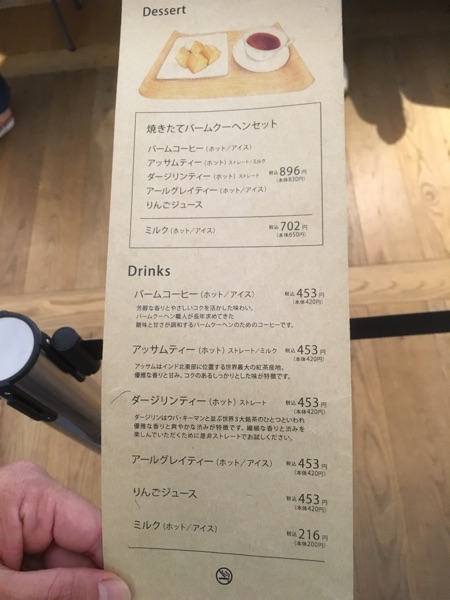 Dessert
焼きたてバームクーヘンセット
バームコーヒー(ホット/アイス)
アッサムティー(ホット) ストレート/ミルク
ダージリンティー(ホット) ストレート
税込 896円
(本体830円)
アールグレイティー(ホット/アイス)
りんごジュース
ミルク(ホット/アイス)
税込 702円
(本体650円)
Drinks
バームコーヒー(ホット/アイス) 税込 453円
(本体420円)
芳醇な香りとやさしいコクを活かした味わい。
バームクーヘン職人が長年求めてきた
酸味と甘さが調和するバームクーヘンのためのコーヒーです。
アッサムティー(ホット) ストレート/ミルク 税込 453円
(本体420円)
アッサムはインド北東部に位置する世界最大の紅茶産地。
優雅な香りと甘み、コクのあるしっかりとした味が特徴です。
ダージリンティー(ホット) ストレート 税込 453円
(本体420円)
ダージリンはウバ・キーマンと並ぶ世界3大銘茶のひとつといわれ
優雅な香りと爽やかな渋みが特徴です。繊細な香りと渋みを
楽しんでいただくために是非ストレートでお試しください。
アールグレイティー(ホット/アイス) 税込 453円
(本体420円)
りんごジュース 税込 453円
(本体420円)
ミルク(ホット/アイス) 税込 216円
(本体200円)